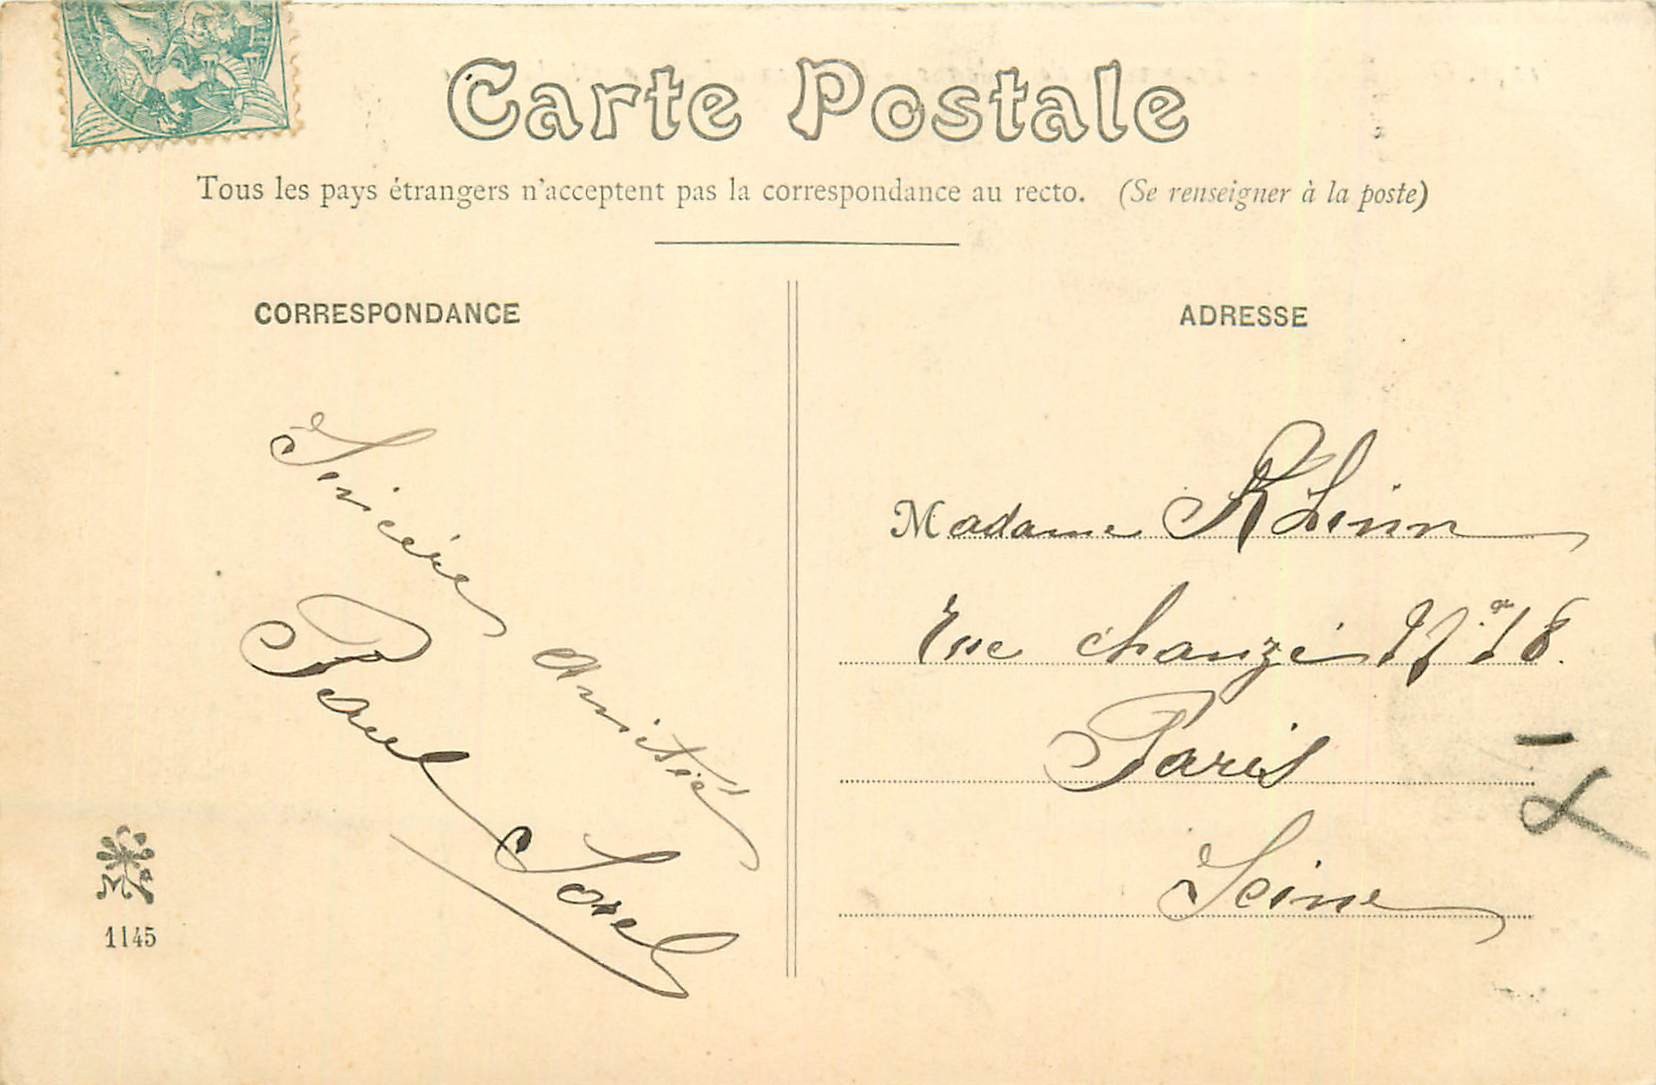 Carte Postale
Tous les pays étrangers n'acceptent pas la correspondance au recto. (Se renseigner à la poste)
CORRESPONDANCE
Sincère amitié
Paul Sorel
1145
ADRESSE
Madame
Rue chanzé N° 18.
Paris
Seine